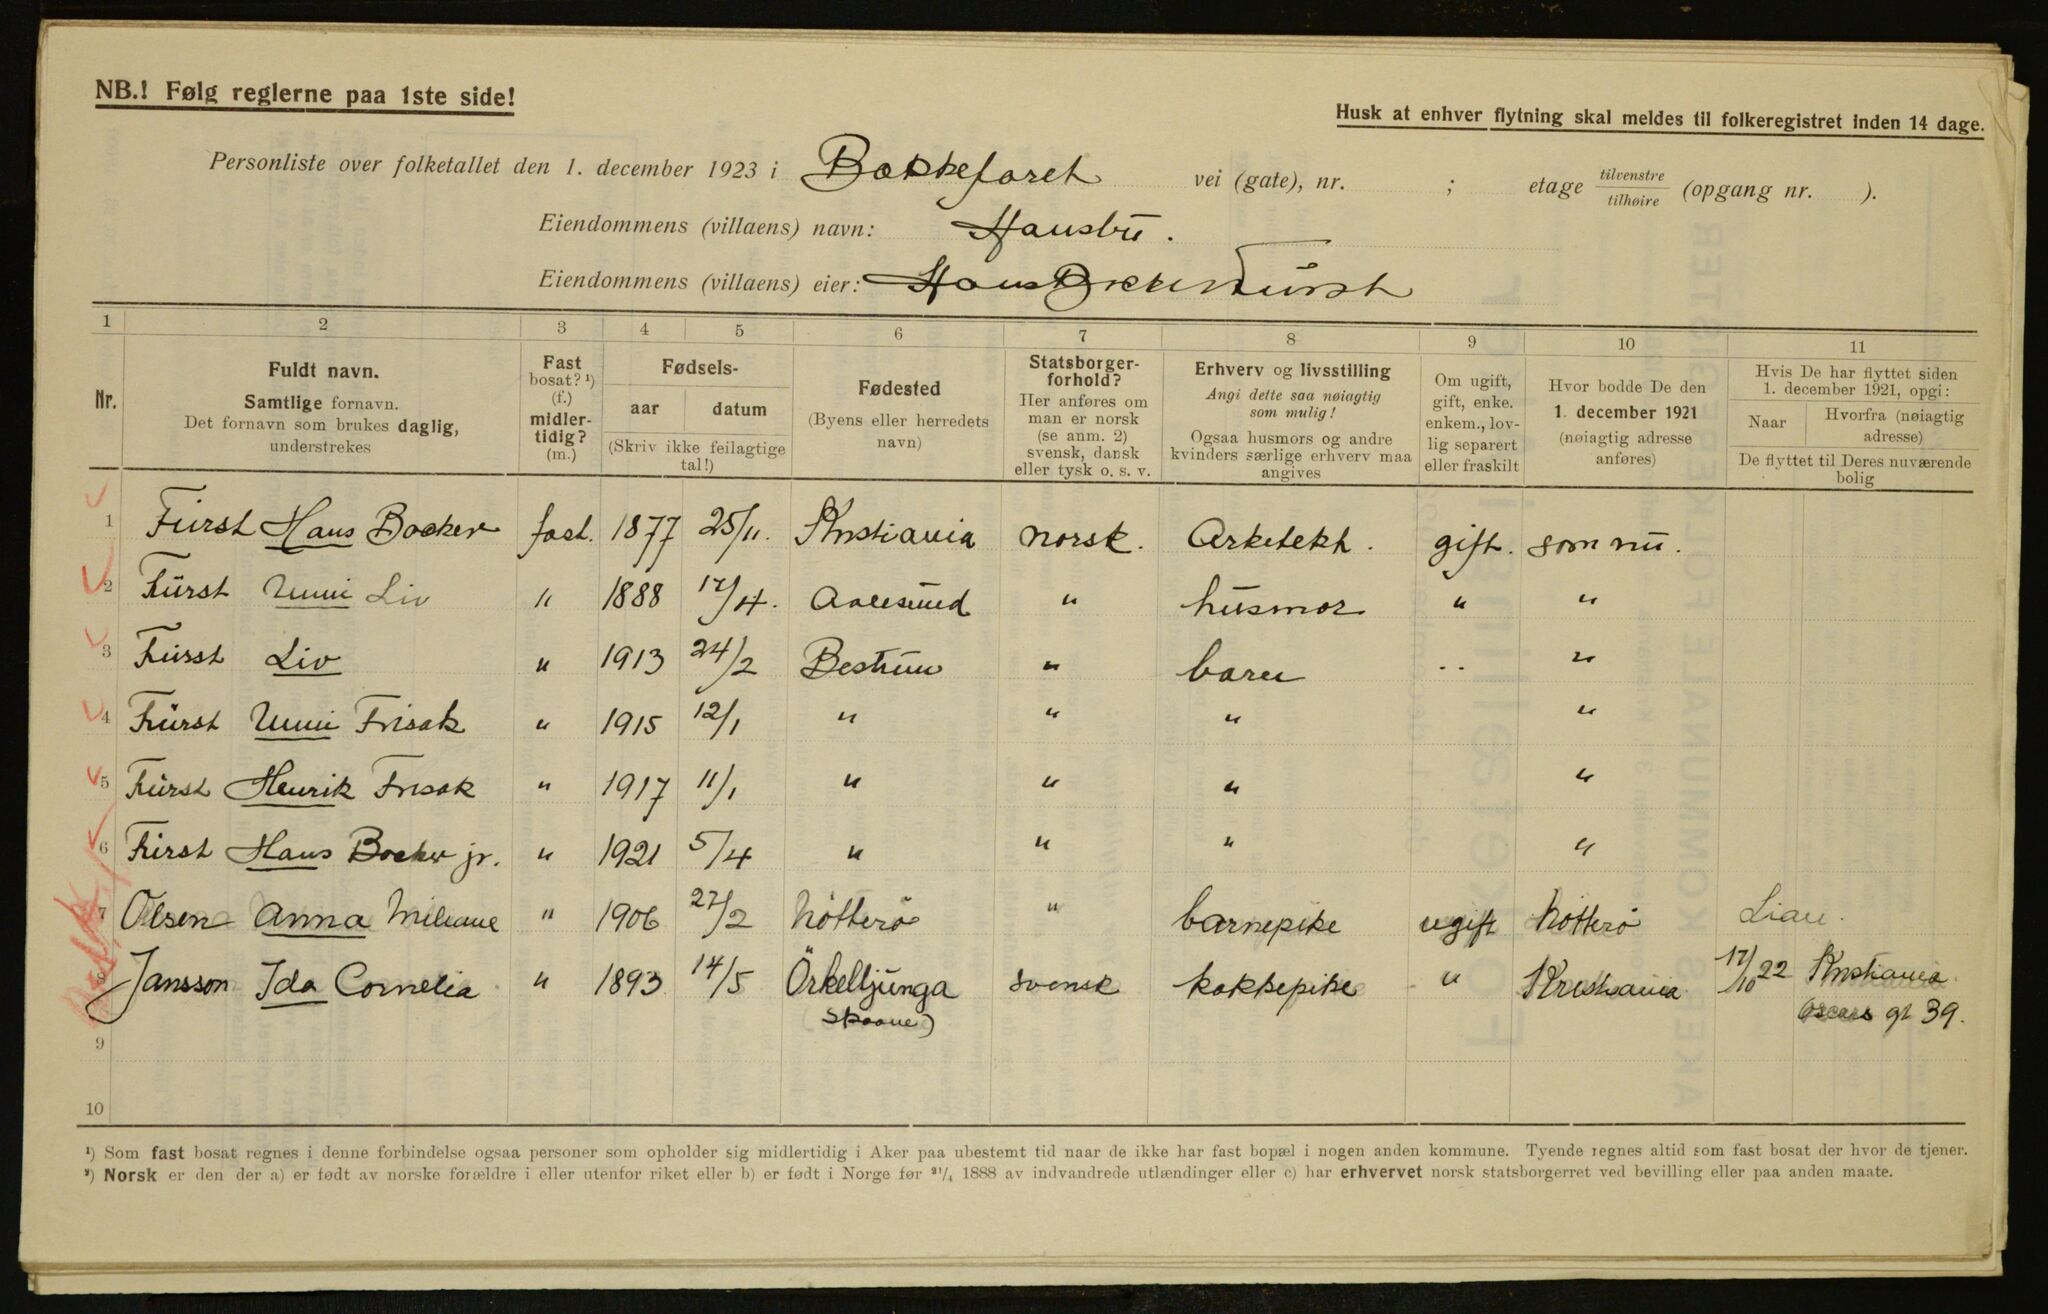 NB.! Følg reglerne paa 1ste side!
Husk at enhver flytning skal meldes til folkeregistret inden 14 dage.
Personliste over folketallet den 1. december 1923 i Bakkefaret vei (gate), nr. ; etage tilvenstre/tilhøire (opgang nr. ).
Eiendommens (villaens) navn: Hansbu.
Eiendommens (villaens) eier: Hans Backer Fürst
1 2 3 4 5 6 7 8 9 10 11
Nr.
Fuldt navn.
Samtlige fornavn.
Det fornavn som brukes daglig,
understrekes
Fast
bosat? ¹)
(f.)
midler-
tidig?
(m.)
Fødsels-
aar datum
(Skriv ikke feilagtige
tal!)
Fødested
(Byens eller herredets
navn)
Statsborger-
forhold?
Her anføres om
man er norsk
(se anm. 2)
svensk, dansk
eller tysk o. s. v.
Erhverv og livsstilling
Angi dette saa nøiagtig
som mulig!
Ogsaa husmors og andre
kvinders særlige erhverv maa
angives
Om ugift,
gift, enke.
enkem., lov-
lig separert
eller fraskilt
Hvor bodde De den
1. december 1921
(nøiagtig adresse
anføres)
Hvis De har flyttet siden
1. december 1921, opgi:
Naar Hvorfra (nøiagtig
adresse)
De flyttet til Deres nuværende
bolig
1 Fürst Hans Backer fast. 1877 25/11. Kristiania norsk. Arkitekt. gift. som nu.
2 Fürst Unni Liv " 1888 17/4. Aalesund " husmor " "
3 Fürst Liv " 1913 24/2 Bestum " barn .. "
4 Fürst Unni Frisak " 1915 12/1 " " " "
5 Fürst Henrik Frisak " 1917 11/1 " " " "
6 Fürst Hans Backer jr. " 1921 5/4 " " " "
7 Olsen Anna Miliane " 1906 27/2 Nøtterö " barnepike ugift Nøtterö Lian.
8 Jansson Ida Cornelia " 1893 14/5 Örkelljunga svensk kokkepike " Kristiania 17/10 22 Kristiania
(Skaane) Oscars gt 39.
9
10
¹) Som fast bosat regnes i denne forbindelse ogsaa personer som opholder sig midlertidig i Aker paa ubestemt tid naar de ikke har fast bopæl i nogen anden kommune. Tyende regnes altid som fast bosat der hvor de tjener.
²) Norsk er den der a) er født av norske forældre i eller utenfor riket eller b) er født i Norge før ²¹/₄ 1888 av indvandrede utlændinger eller c) har erhvervet norsk statsborgerret ved bevilling eller paa anden maate.